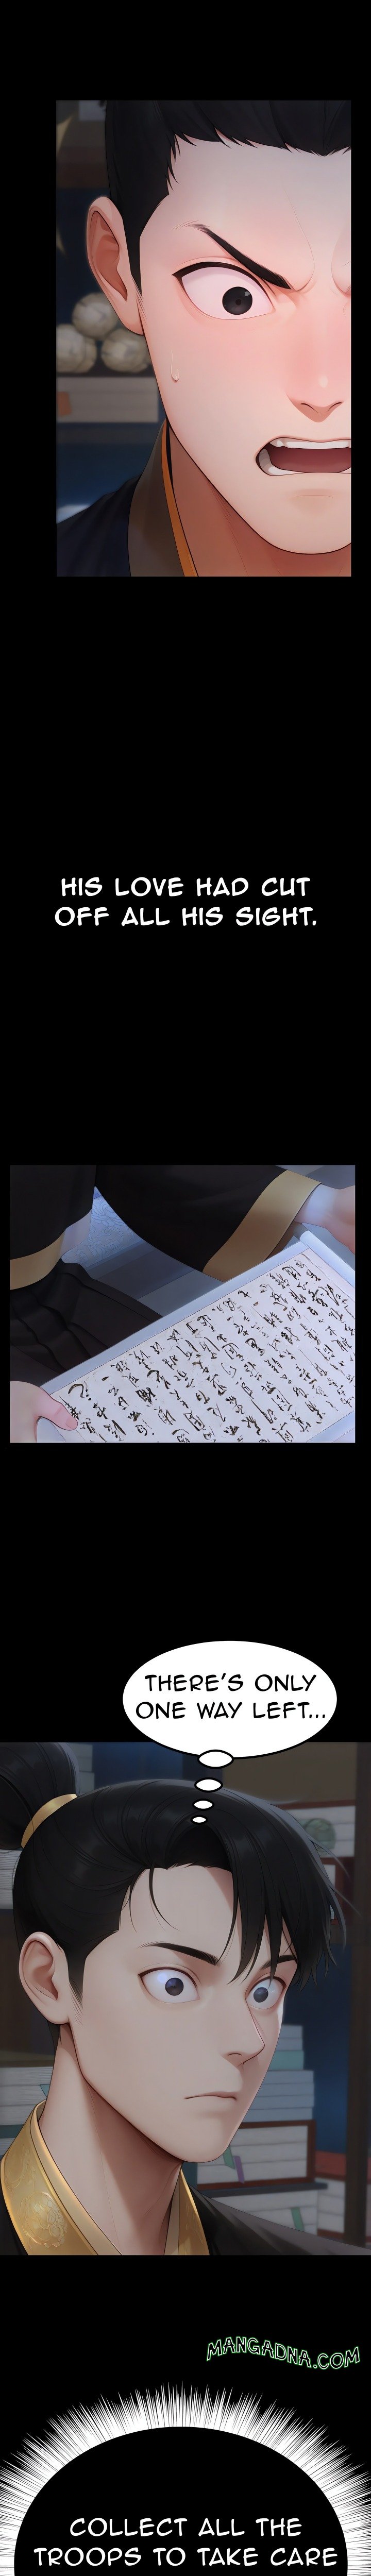 HIS LOVE HAD CUT
OFF ALL HIS SIGHT.
THERE'S ONLY
ONE WAY LEFT...
MANGADNA.COM
COLLECT ALL THE
TROOPS TO TAKE CARE